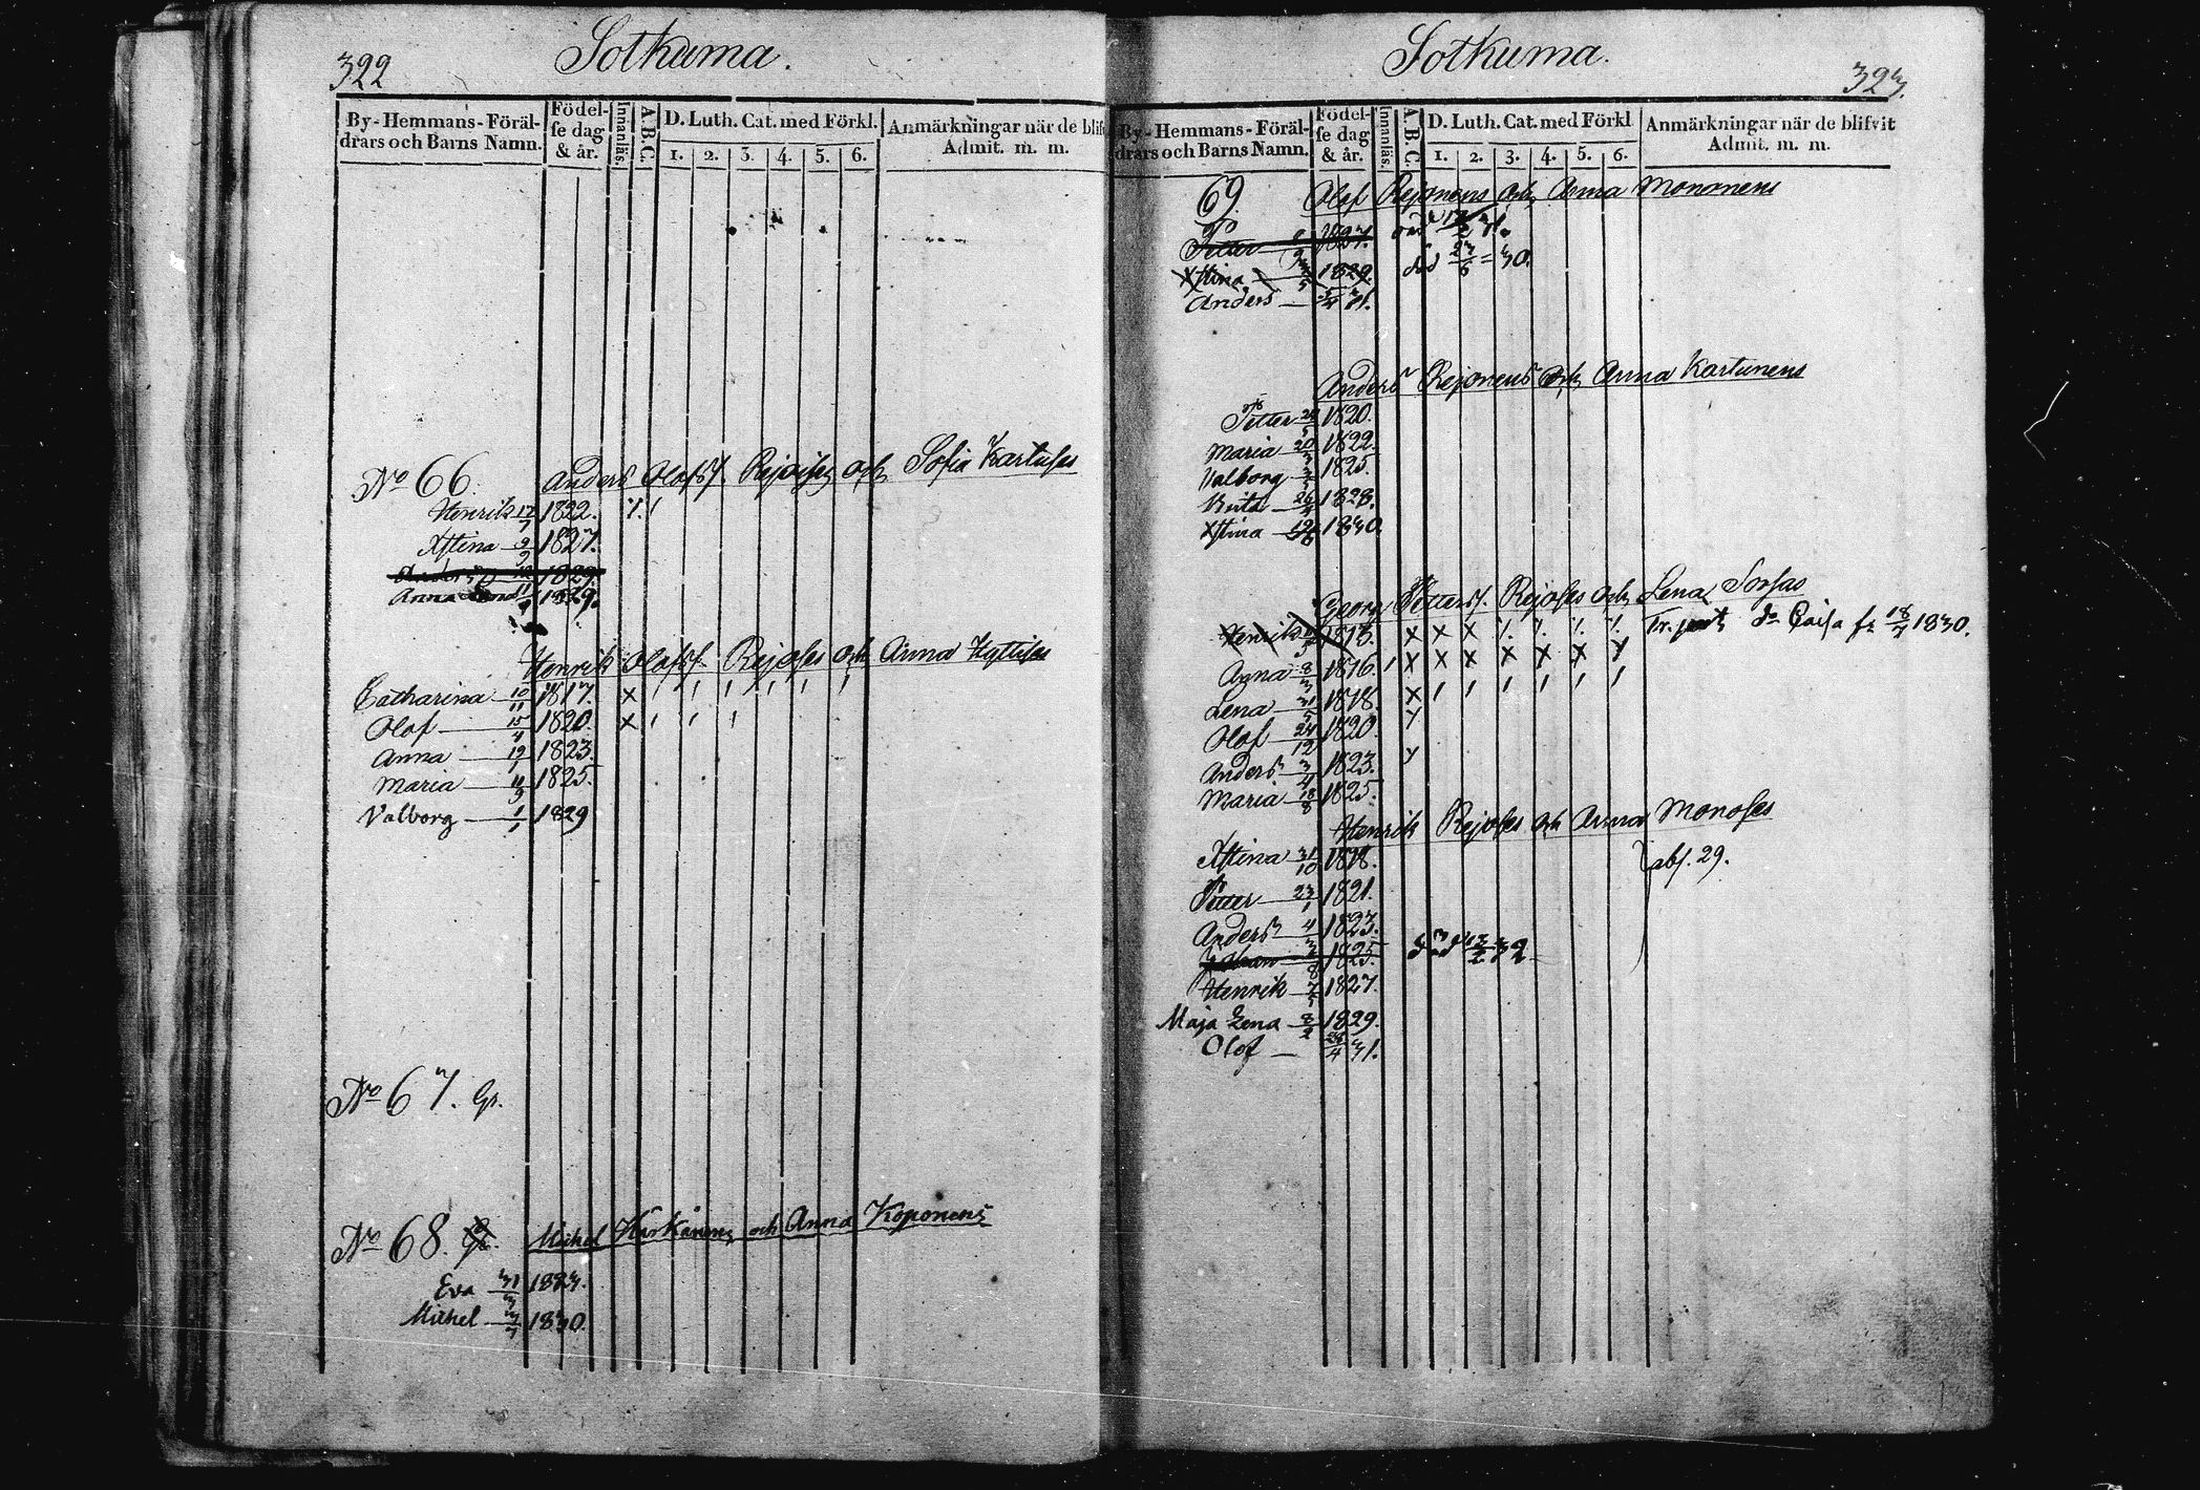 322
Sotkuma.
By-Hemmans-Föräl-
drars och Barns Namn.
Födel-
se dag
& år.
Innanläs.
A.B.C.
D. Luth. Cat. med Förkl.
1. 2. 3. 4. 5. 6.
Anmärkningar när de blifvit
Admit. m. m.
No 66. Anders Olofss. Rejoises och Sofia Kartuses
Henrik 17/7 1822. ⁒ /
Xstina 9/9 1827.
Anders 12 1829.
Anna 11/9 1829.
Henrik Olofss. Rejoses och Anna Hyttises
Catharina 10/11 1817. x / / / / / /
Olof 15/4 1820. x / / /
Anna 19/1 1823.
Maria 11/9 1825.
Valborg 1/1 1829
No 67. Gr.
No 68. Michel Härkänens och Anna Koponens
Eva 31/3 1823.
Michel 3/7 1830.
Sotkuma.
323.
By-Hemmans-Föräl-
drars och Barns Namn.
Födel-
se dag
& år.
Innanläs.
A.B.C.
D. Luth. Cat. med Förkl
1. 2. 3. 4. 5. 6.
Anmärkningar när de blifvit
Admit. m. m.
69. Olof Rejonens och Anna Mononens
Petter 1827.
Xstina 1829. död 23/6 = 30.
Anders 5/4 31.
Anders Rejonens och Anna Kartunens
Petter 24 1820.
Maria 20/3 1822.
Valborg 1825.
Brita 26/4 1828.
Xstina 19/6 1830.
Georg Petterss. Rejoses och Lena Sorsas
Henrik 1813. x x x ⁒ ⁒ ⁒ ⁒ Tr. do Caisa fr 18/7 1830.
Anna 8/3 1816. / x x x x x x x
Lena 31/5 1818. x / / / / / /
Olof 24/12 1820. y
Anders 3/4 1823. y
Maria 18/8 1825.
Henrik Rejoses och Anna Monoses
Xstina 31/10 1818. abs. 29.
Petter 23/1 1821.
Anders 4 1823.
Johan 8 1825. död 32
Henrik 7 1827.
Maja Lena 8/2 1829.
Olof 4 31.